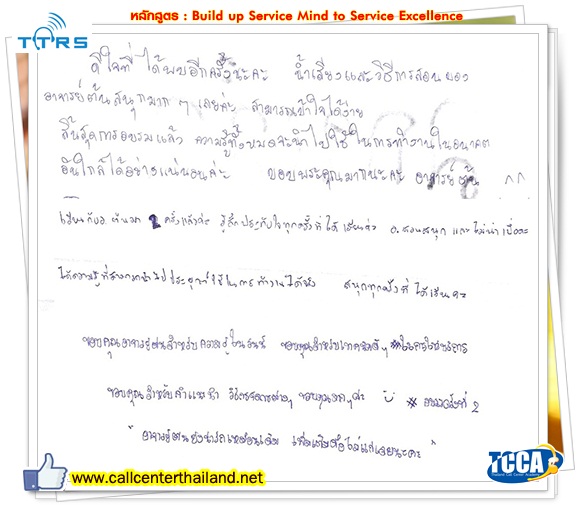 หลักสูตร : Build up Service Mind to Service Excellence
TTRS
ดีใจที่ ได้พบอีกครั้งนะคะ น้ำเสียงและวิธีการสอนของ
อาจารย์ต้นสนุกมาก ๆ เลยค่ะ สามารถเข้าใจได้ง่าย
สิ้นสุดการอบรมแล้ว ความรู้ทั้งหมดจะนำไปใช้ในการทำงานในอนาคต
อันใกล้ได้อย่างแน่นอนค่ะ ขอบพระคุณมากนะคะ อาจารย์ต้น ^^
เรียนกับอ. ต้นมา 2 ครั้งแล้วค่ะ รู้สึกประทับใจทุกครั้งที่ได้เรียนค่ะ อ.สอนสนุก และไม่น่าเบื่อคะ
ได้ความรู้ที่สามารถนำไปประยุกต์ใช้ในการทำงานได้จริง สนุกทุกครั้งที่ได้เรียนคะ
ขอบคุณอาจารย์ต้นสำหรับความรู้ในวันนี้ ขอบคุณสำหรับเทคนิคดีๆ ในการให้บริการ
ขอบคุณสำหรับคำแนะนำ วิธีการต่างๆ ขอบคุณมากๆค่ะ ครั้งที่ 2
" อาจารย์ต้นยังน่ารักเหมือนเดิม
www.callcenterthailand.net
TCCA